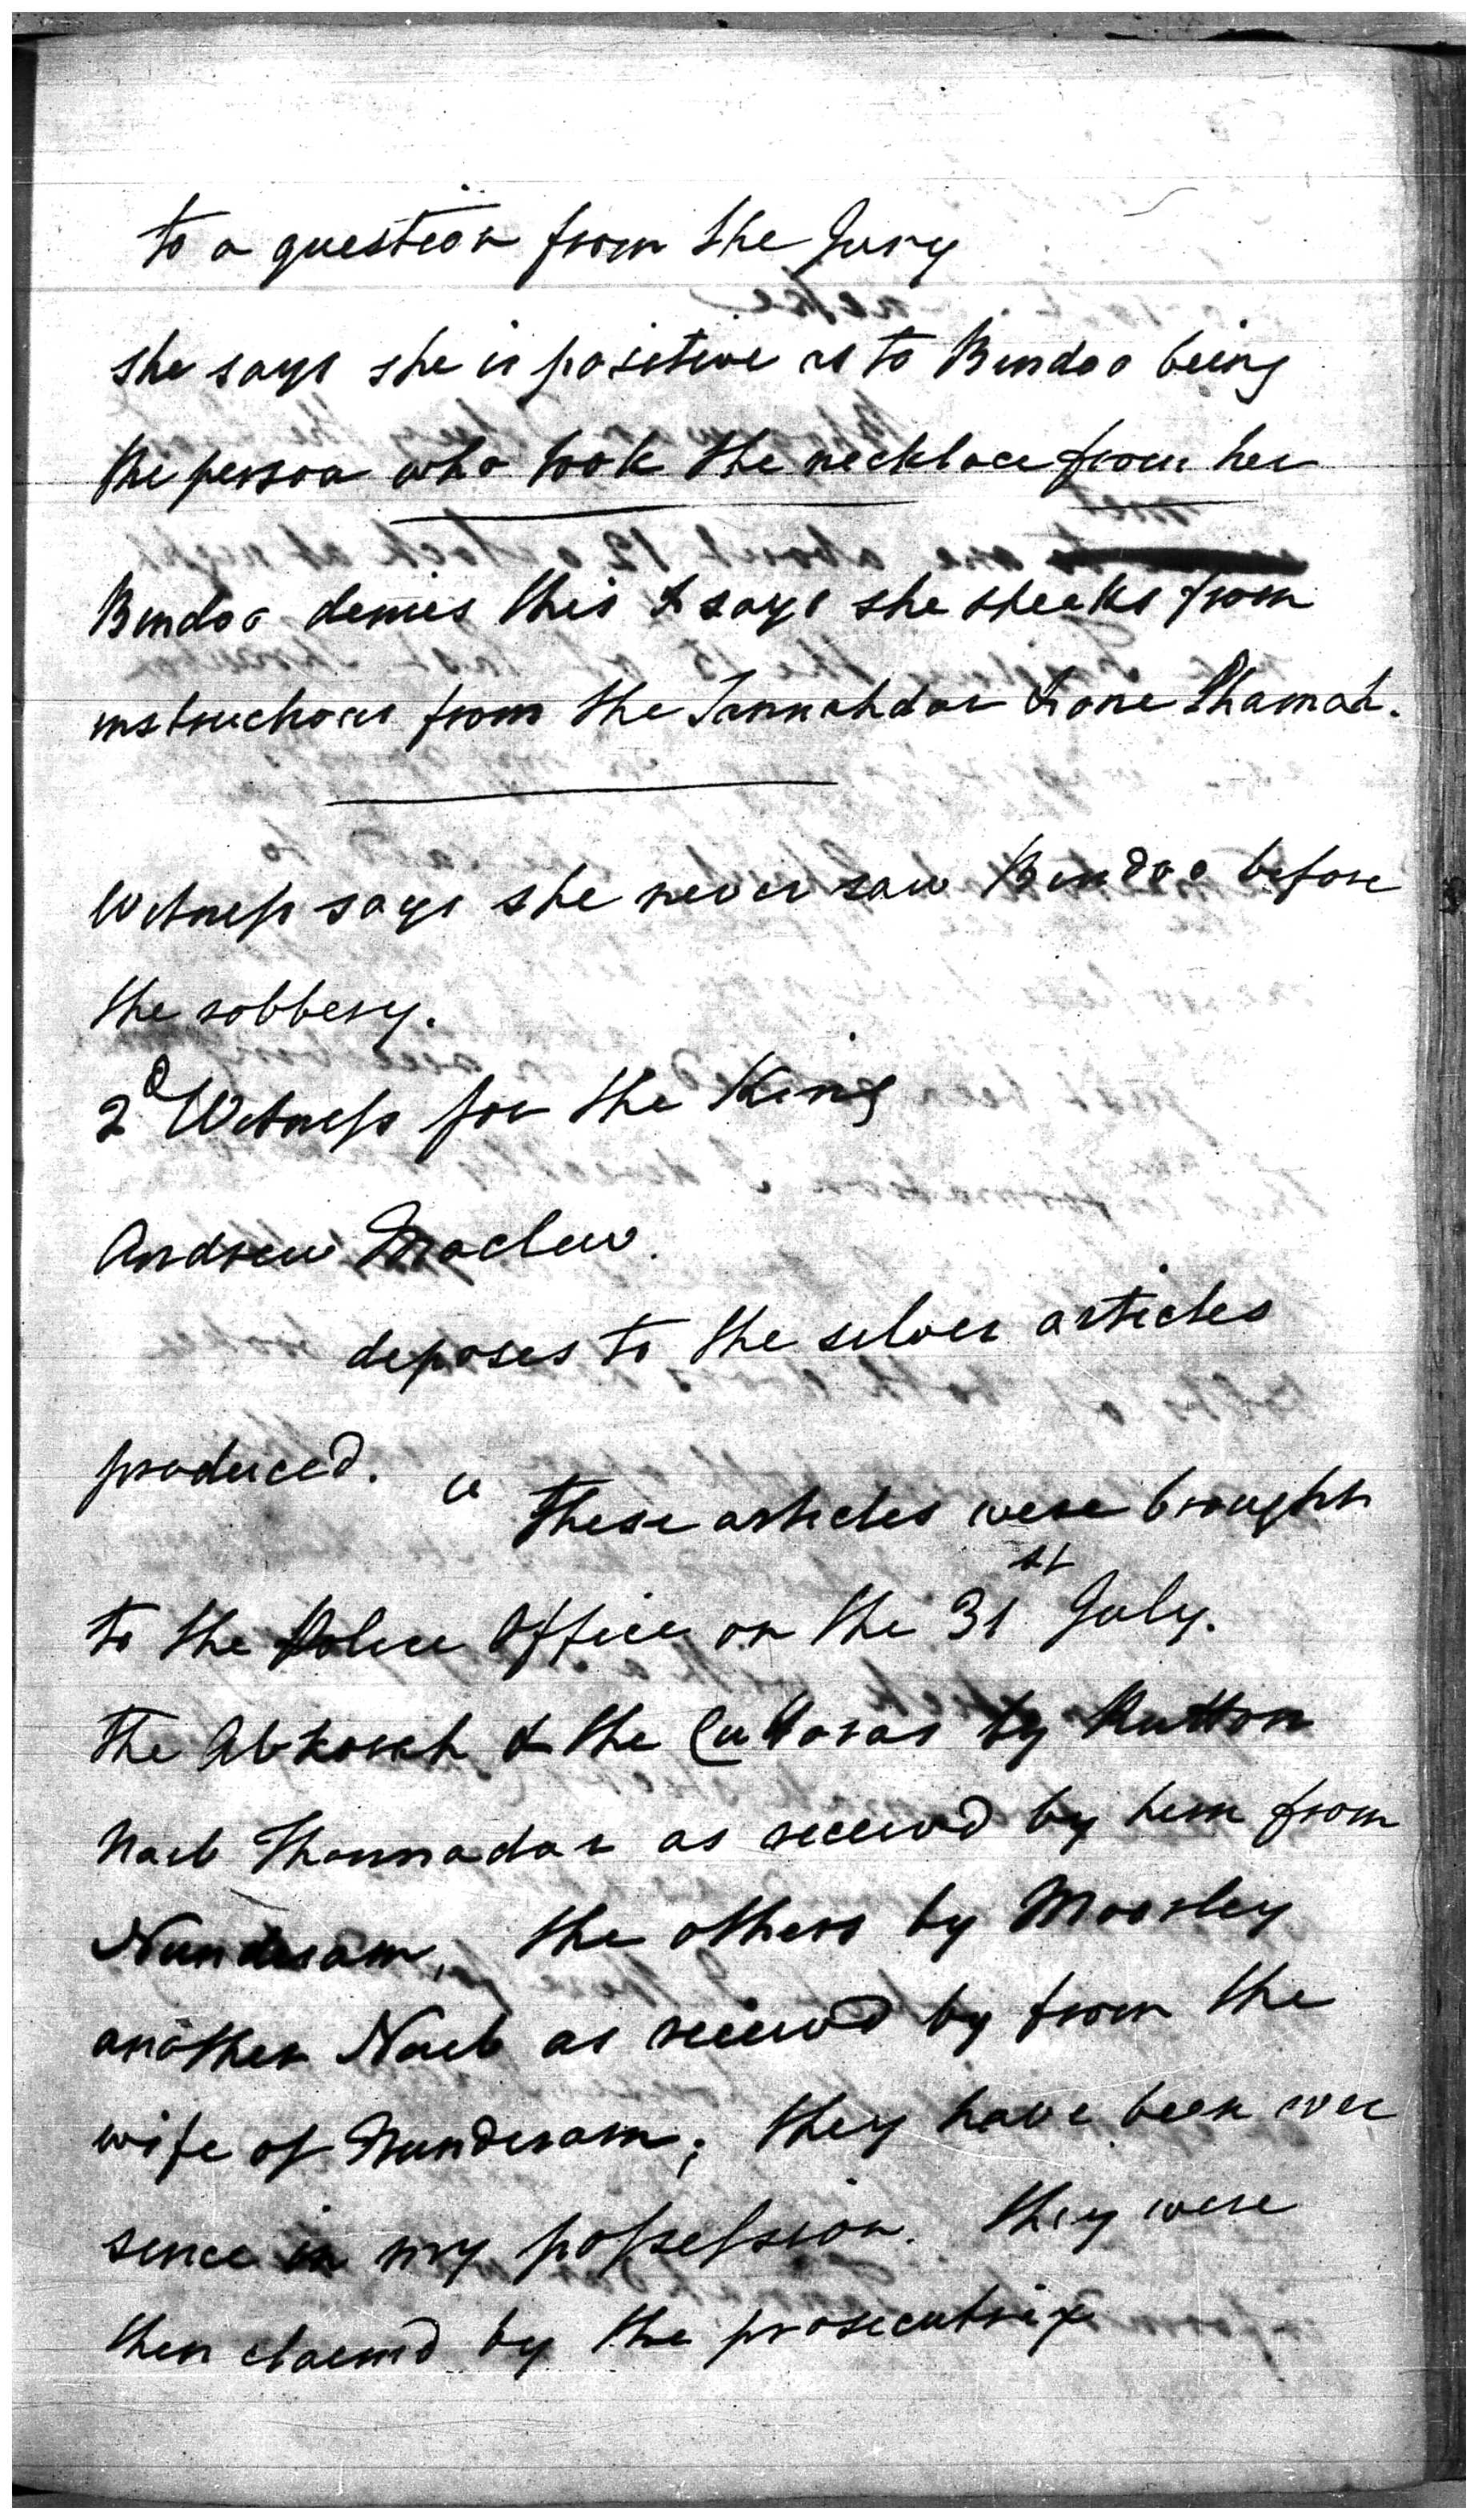 to a question from the Jury
she says she is positive as to Bindoo being
the person who took the necklace from her
Bindoo denies this & says she speaks from
instructions from the Tannahdar & one Shamah.
Witness says she never saw Bindoo before
the robbery.
2d Witness for the King
Andrew
deposes to the silver articles
produced. " these articles were brought
to the Police Office on the 31st July.
the & the by Rutton
Naib Thannadar as received by him from
Nunderam, the others by Moorley
another Naib as received by from the
wife of Nunderam; they have been ever
since in my possession. they were
then claimed by the prosecutrix